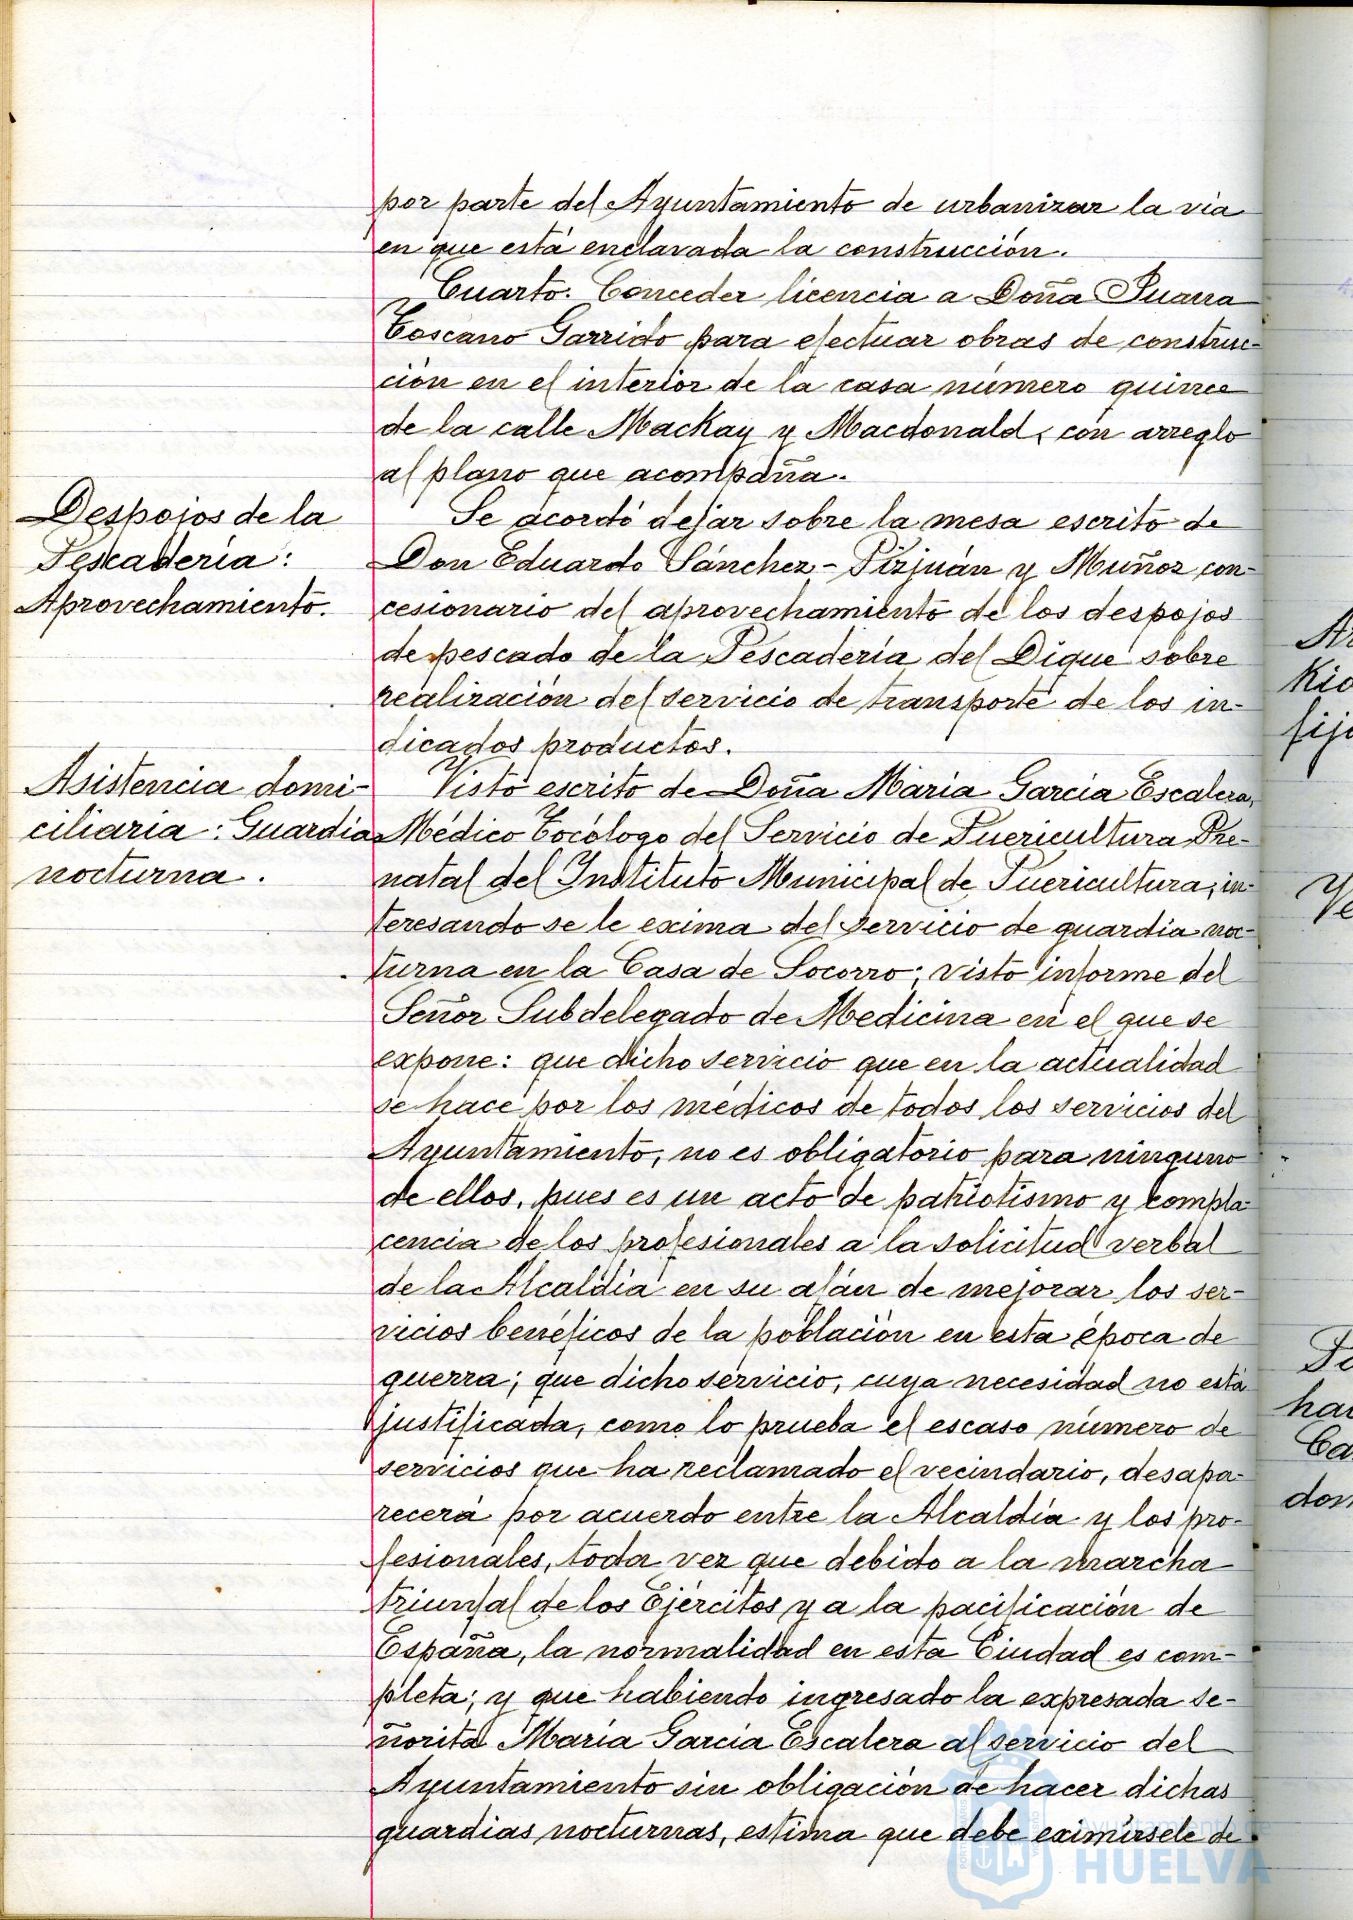 por parte del Ayuntamiento de urbanizar la via
en que está enclavada la construcción.
Cuarto. Conceder licencia a Doña Juana
Toscano Garrido para efectuar obras de construc-
ción en el interior de la casa número quince
de la calle Mackay y Macdonald, con arreglo
al plano que acompaña.
Despojos de la
Pescadería:
Aprovechamiento.
Se acordó dejar sobre la mesa escrito de
Don Eduardo Sánchez-Pizjuán y Muñoz con-
cesionario del aprovechamiento de los despojos
de pescado de la Pescadería del Dique sobre
realización del servicio de transporte de los in-
dicados productos.
Asistencia domi-
ciliaria: Guardia
nocturna.
Visto escrito de Doña Maria Garcia Escalera,
Médico Tocólogo del Servicio de Puericultura Pre-
natal del Instituto Municipal de Puericultura, in-
teresando se le exima del servicio de guardia noc-
turna en la Casa de Socorro; visto informe del
Señor Subdelegado de Medicina en el que se
expone: que dicho servicio que en la actualidad
se hace por los médicos de todos los servicios del
Ayuntamiento, no es obligatorio para ninguno
de ellos, pues es un acto de patriotismo y compla-
cencia de los profesionales a la solicitud verbal
de la Alcaldía en su afán de mejorar los ser-
vicios benéficos de la población en esta época de
guerra; que dicho servicio, cuya necesidad no está
justificada, como lo prueba el escaso número de
servicios que ha reclamado el vecindario, desapa-
recerá por acuerdo entre la Alcaldía y los pro-
fesionales, toda vez que debido a la marcha
triunfal de los Ejércitos y a la pacificación de
España, la normalidad en esta Ciudad es com-
pleta; y que habiendo ingresado la expresada se-
ñorita María García Escalera al servicio del
Ayuntamiento sin obligación de hacer dichas
guardias nocturnas, estima que debe eximírsele de
Ayuntamiento de
HUELVA